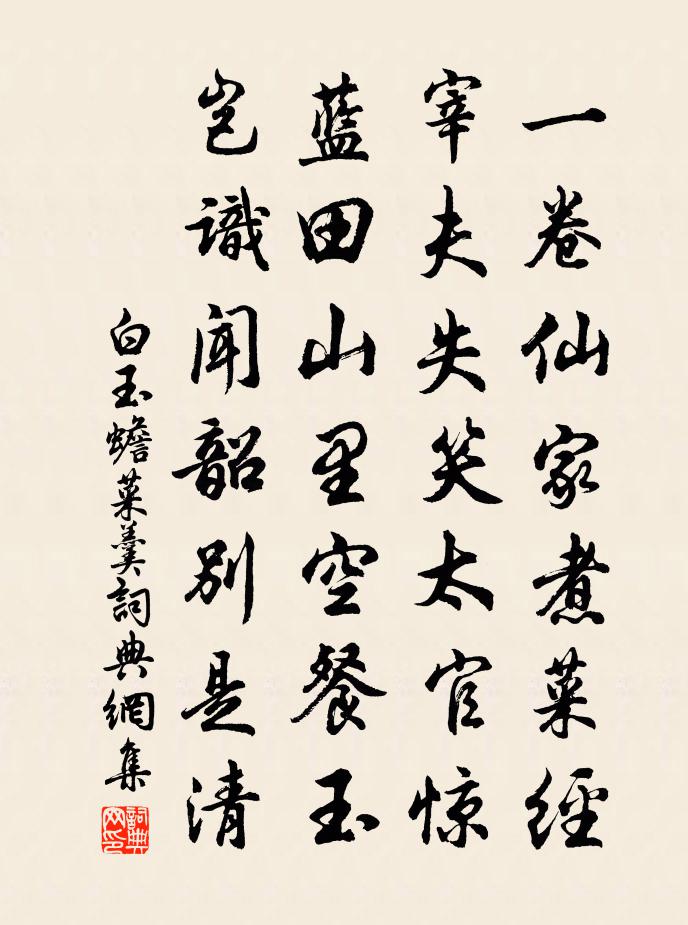 一卷仙家煮菜經
宰夫失笑太官惊
藍田山里空餐玉
岂識聞韶別是清
白玉蟾菜羹詞典網集
詞典网印